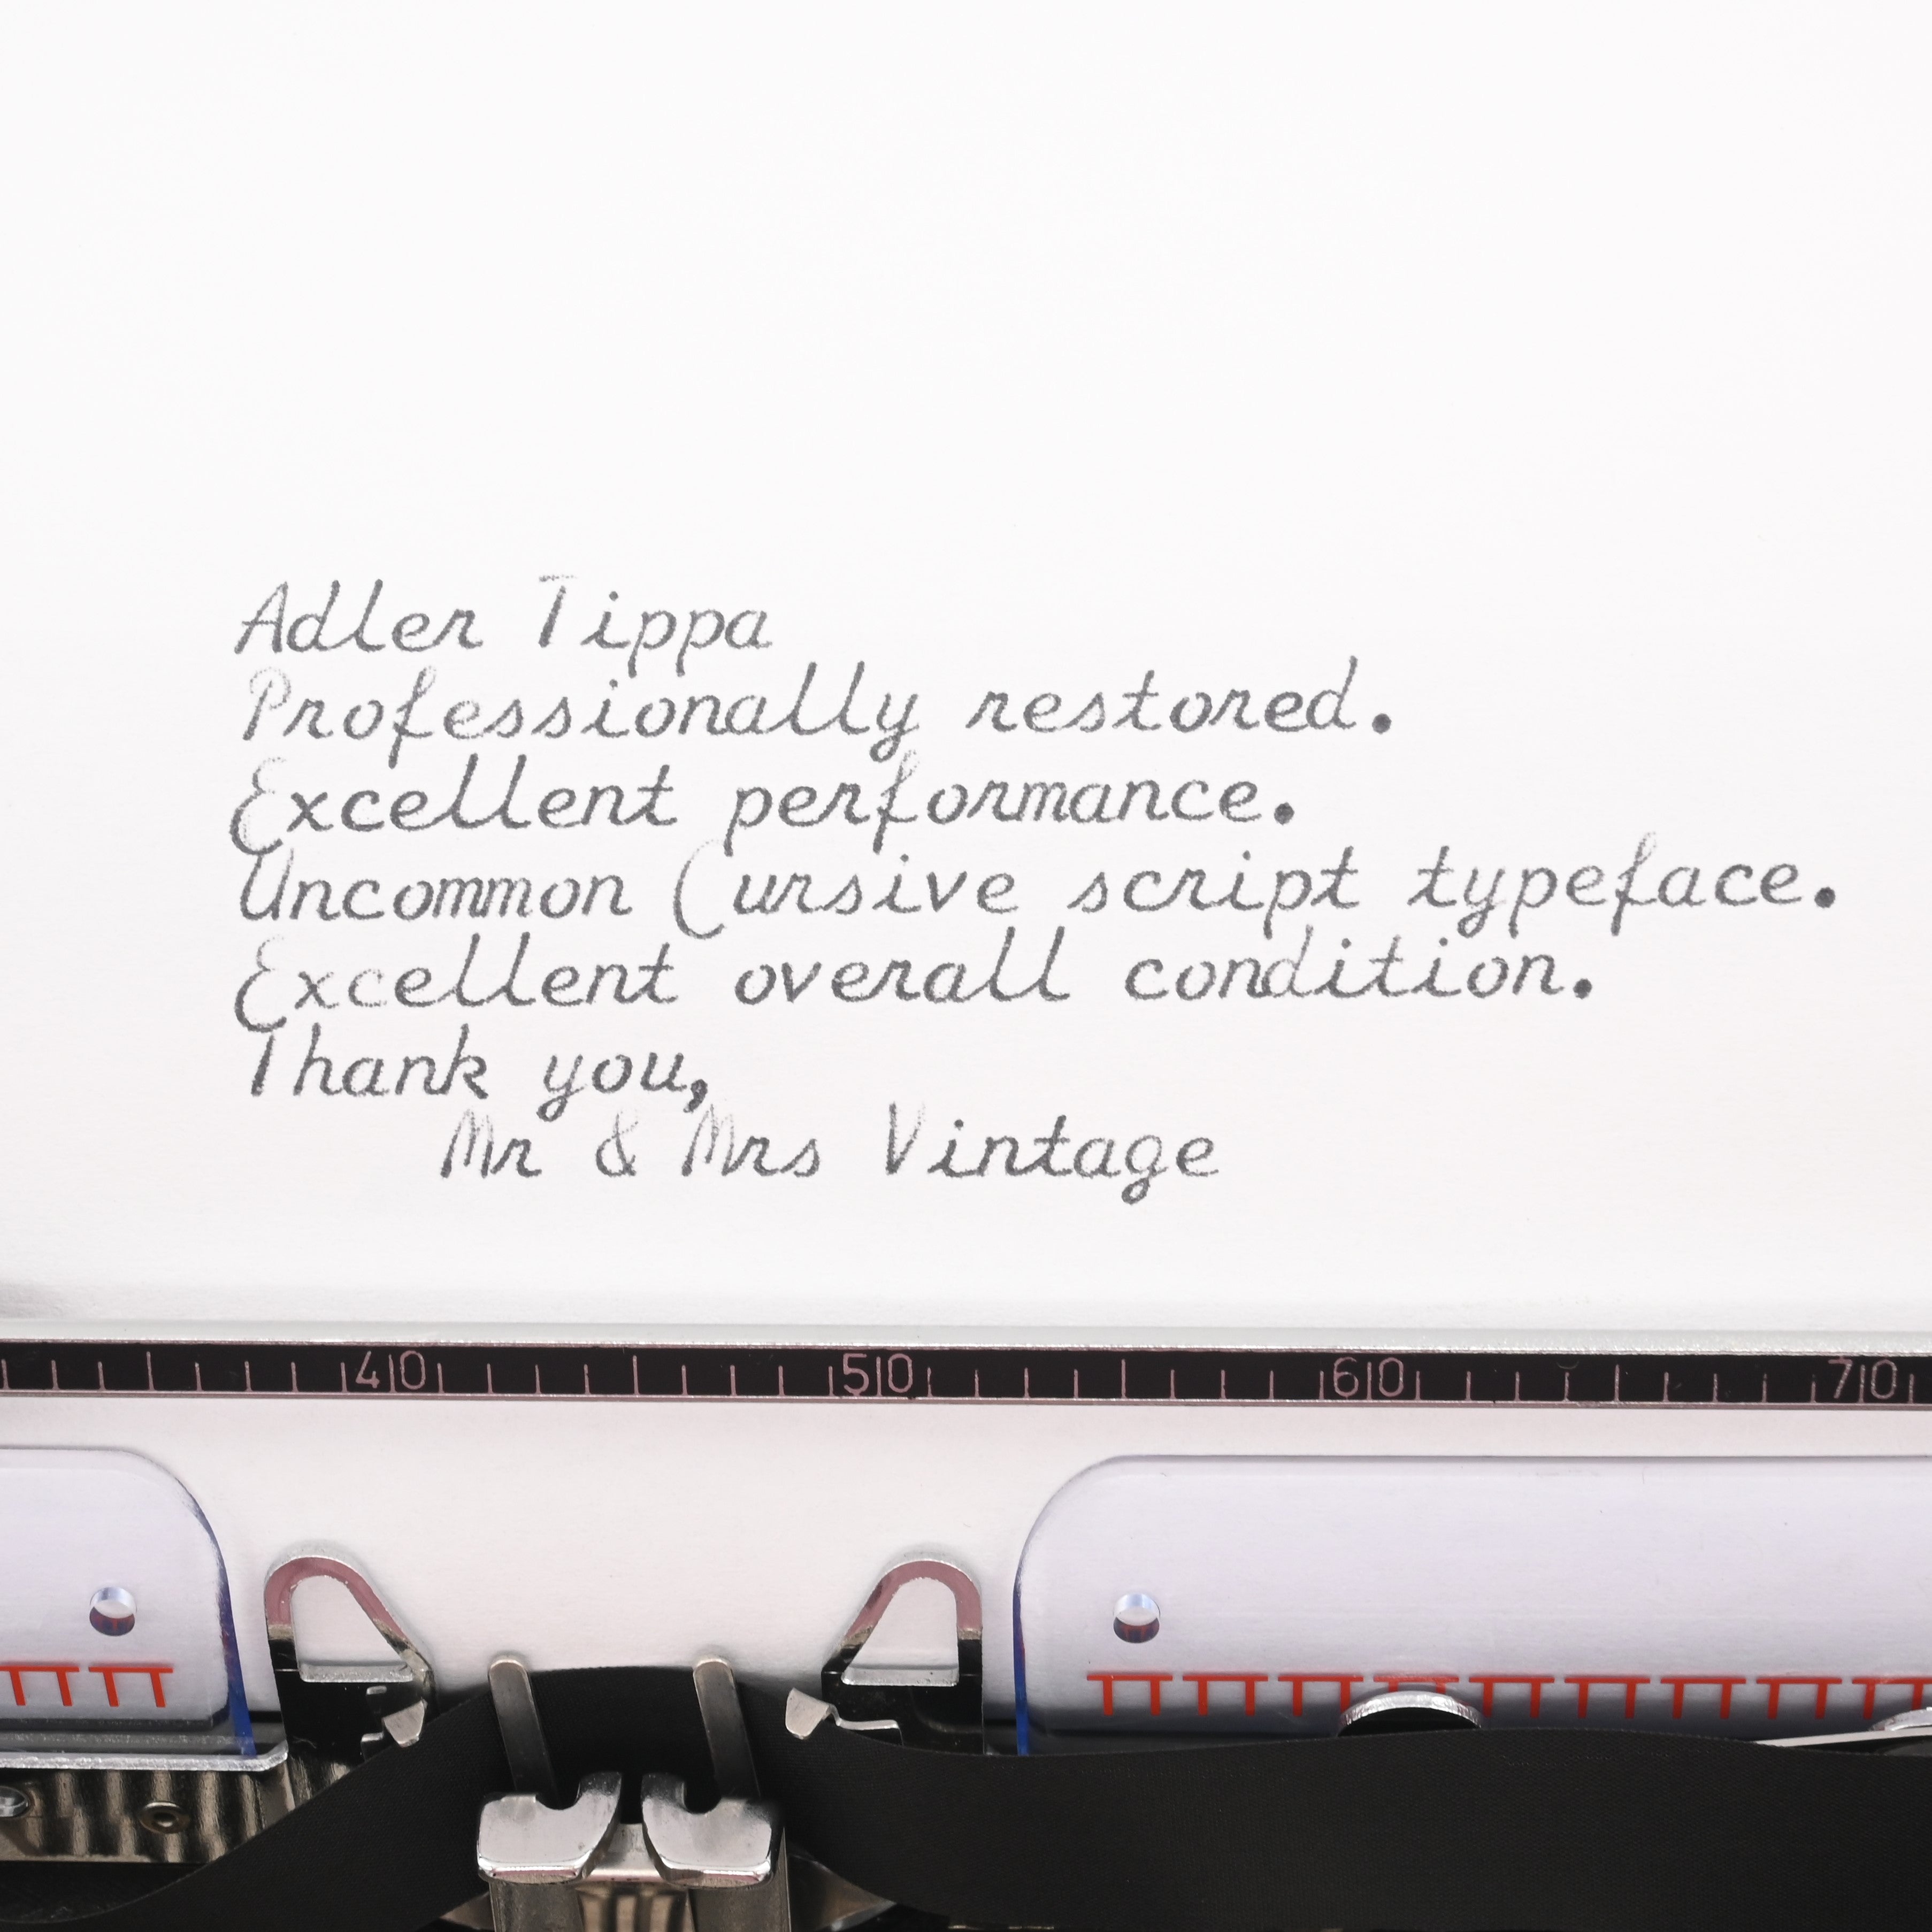 Adler Tippa
Professionally restored.
Excellent performance.
Uncommon Cursive script typeface.
Excellent overall condition.
Thank you,
Mr & Mrs Vintage
40 50 60 70